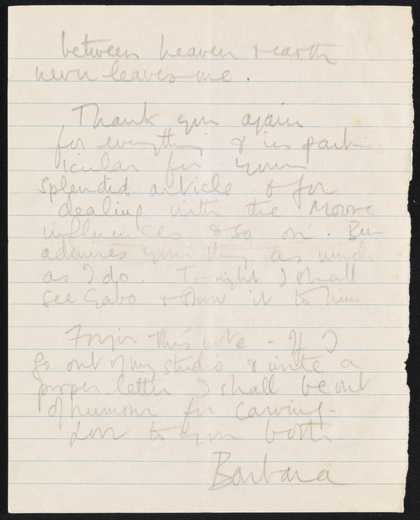 between heaven & earth
never leaves me.
Thank you again
for everything & in part-
icular for your
splendid article & for
dealing with the Moore
influences & so on. Ben
admires your thing as much
as I do. Tonight I shall
see Gabo & show it to him
Forgive this note - If I
go out of my studio & write a
proper letter I shall be out
of humour for carving.
Love to you both
Barbara